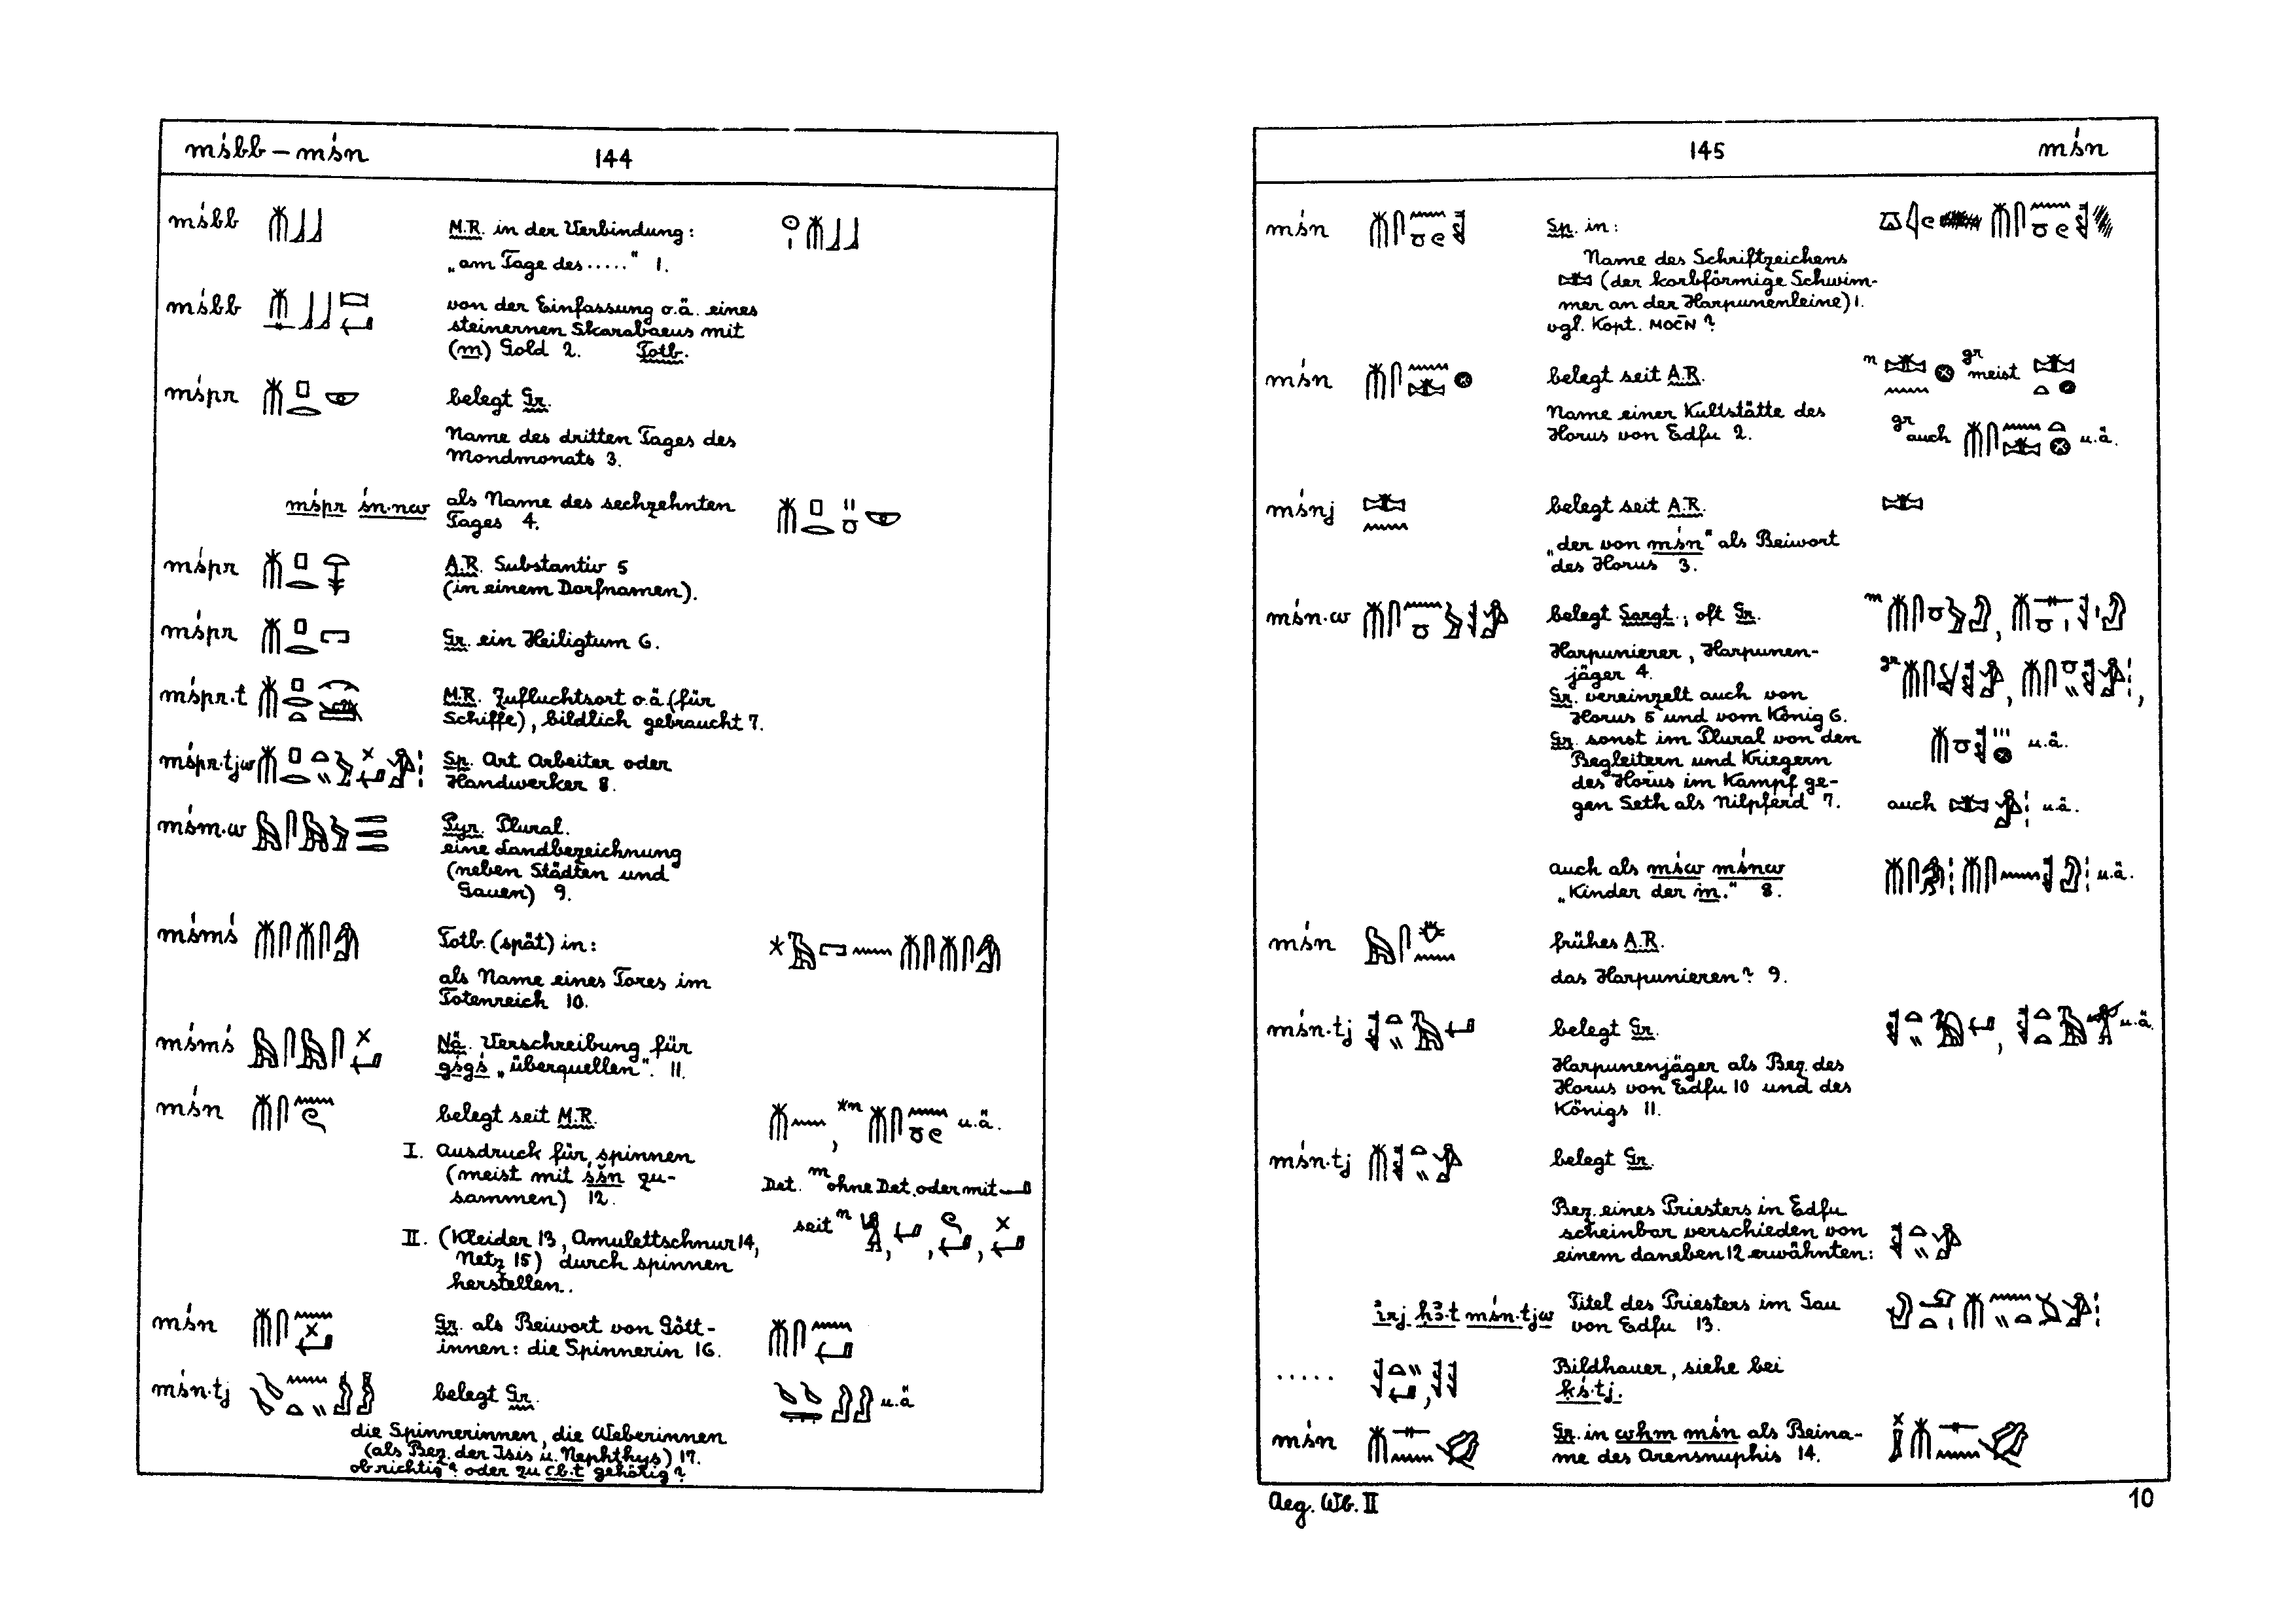 mśbb – mśn 144
mśbb M.R. in der Verbindung:
„am Tage des ....." 1.
mśbb von der Einfassung o.ä. eines
steinernen Skarabaeus mit
(m) Gold 2. Totb.
mśpr belegt Gr.
Name des dritten Tages des
Mondmonats 3.
mśpr śn·nw als Name des sechzehnten
Tages 4.
mśpr A.R. Substantiv 5
(in einem Dorfnamen).
mśpr Gr. ein Heiligtum 6.
mśpr·t M.R. Zufluchtsort o.ä. (für
Schiffe), bildlich gebraucht 7.
mśpr·tjw Sp. Art Arbeiter oder
Handwerker 8.
mśm·w Pyr. Plural.
eine Landbezeichnung
(neben Städten und
Gauen) 9.
mśmś Totb. (spät) in:
als Name eines Tores im
Totenreich 10.
mśmś Nä. Verschreibung für
gśgś „überquellen". 11.
mśn belegt seit M.R. u.ä.
I. Ausdruck für spinnen
(meist mit śšn zu-
sammen) 12.
Det. m ohne Det. oder mit
seit n
II. (Kleider 13, Amulettschnur 14,
Netz 15) durch spinnen
herstellen.
mśn Gr. als Beiwort von Gött-
innen: die Spinnerin 16.
mśn·tj belegt Gr. u.ä
die Spinnerinnen, die Weberinnen
(als Bez. der Isis u. Nephthys) 17.
ob richtig? oder zu cb·t gehörig?
145 mśn
mśn Sp. in:
Name des Schriftzeichens
(der korbförmige Schwim-
mer an der Harpunenleine) 1.
vgl. Kopt. ⲙⲟⲥ̄ⲛ ?
mśn belegt seit A.R. n gr meist
Name einer Kultstätte des
Horus von Edfu 2. gr auch u.ä.
mśnj belegt seit A.R.
„der von mśn" als Beiwort
des Horus 3.
mśn·w belegt Sargt.; oft Gr. m
Harpunierer, Harpunen-
jäger 4. gr
Gr. vereinzelt auch von
Horus 5 und vom König 6.
Gr. sonst im Plural von den u.ä.
Begleitern und Kriegern
des Horus im Kampf ge-
gen Seth als Nilpferd 7. auch u.ä.
auch als mśw mśnw u.ä.
„Kinder der m." 8.
mśn frühes A.R.
das Harpunieren? 9.
mśn·tj belegt Gr. u.ä.
Harpunenjäger als Bez. des
Horus von Edfu 10 und des
Königs 11.
mśn·tj belegt Gr.
Bez. eines Priesters in Edfu
scheinbar verschieden von
einem daneben 12 erwähnten:
irj ḥꜣ·t mśn·tjw Titel des Priesters im Gau
von Edfu 13.
..... Bildhauer, siehe bei
ḳś·tj.
mśn Gr. in whm mśn als Beina-
me des Arensnuphis 14.
Aeg. Wb. II 10